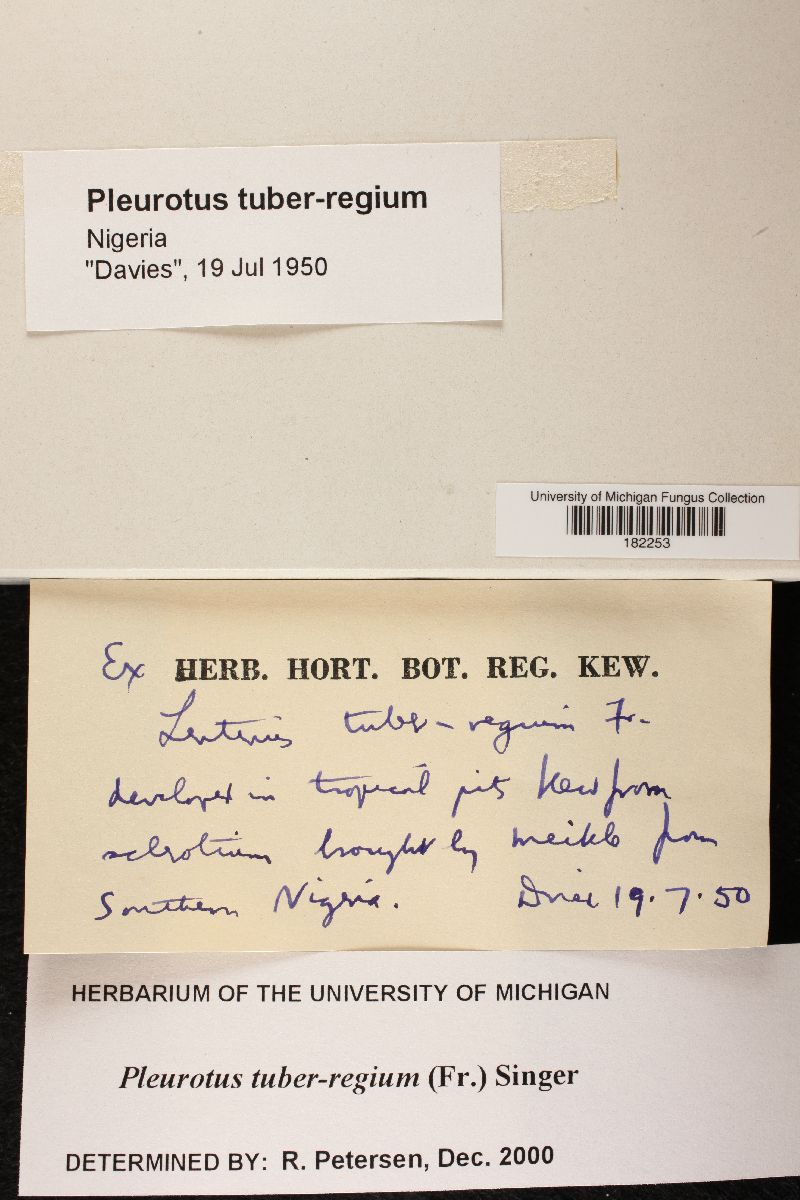 Pleurotus tuber-regium
Nigeria
"Davies", 19 Jul 1950
University of Michigan Fungus Collection
182253
Ex HERB. HORT. BOT. REG. KEW.
Lentinus tuber-regium Fr.
developed in tropical pits Kew from
sclerotium brought by Meikle from
Southern Nigeria. Dried 19.7.50
HERBARIUM OF THE UNIVERSITY OF MICHIGAN
Pleurotus tuber-regium (Fr.) Singer
DETERMINED BY: R. Petersen, Dec. 2000